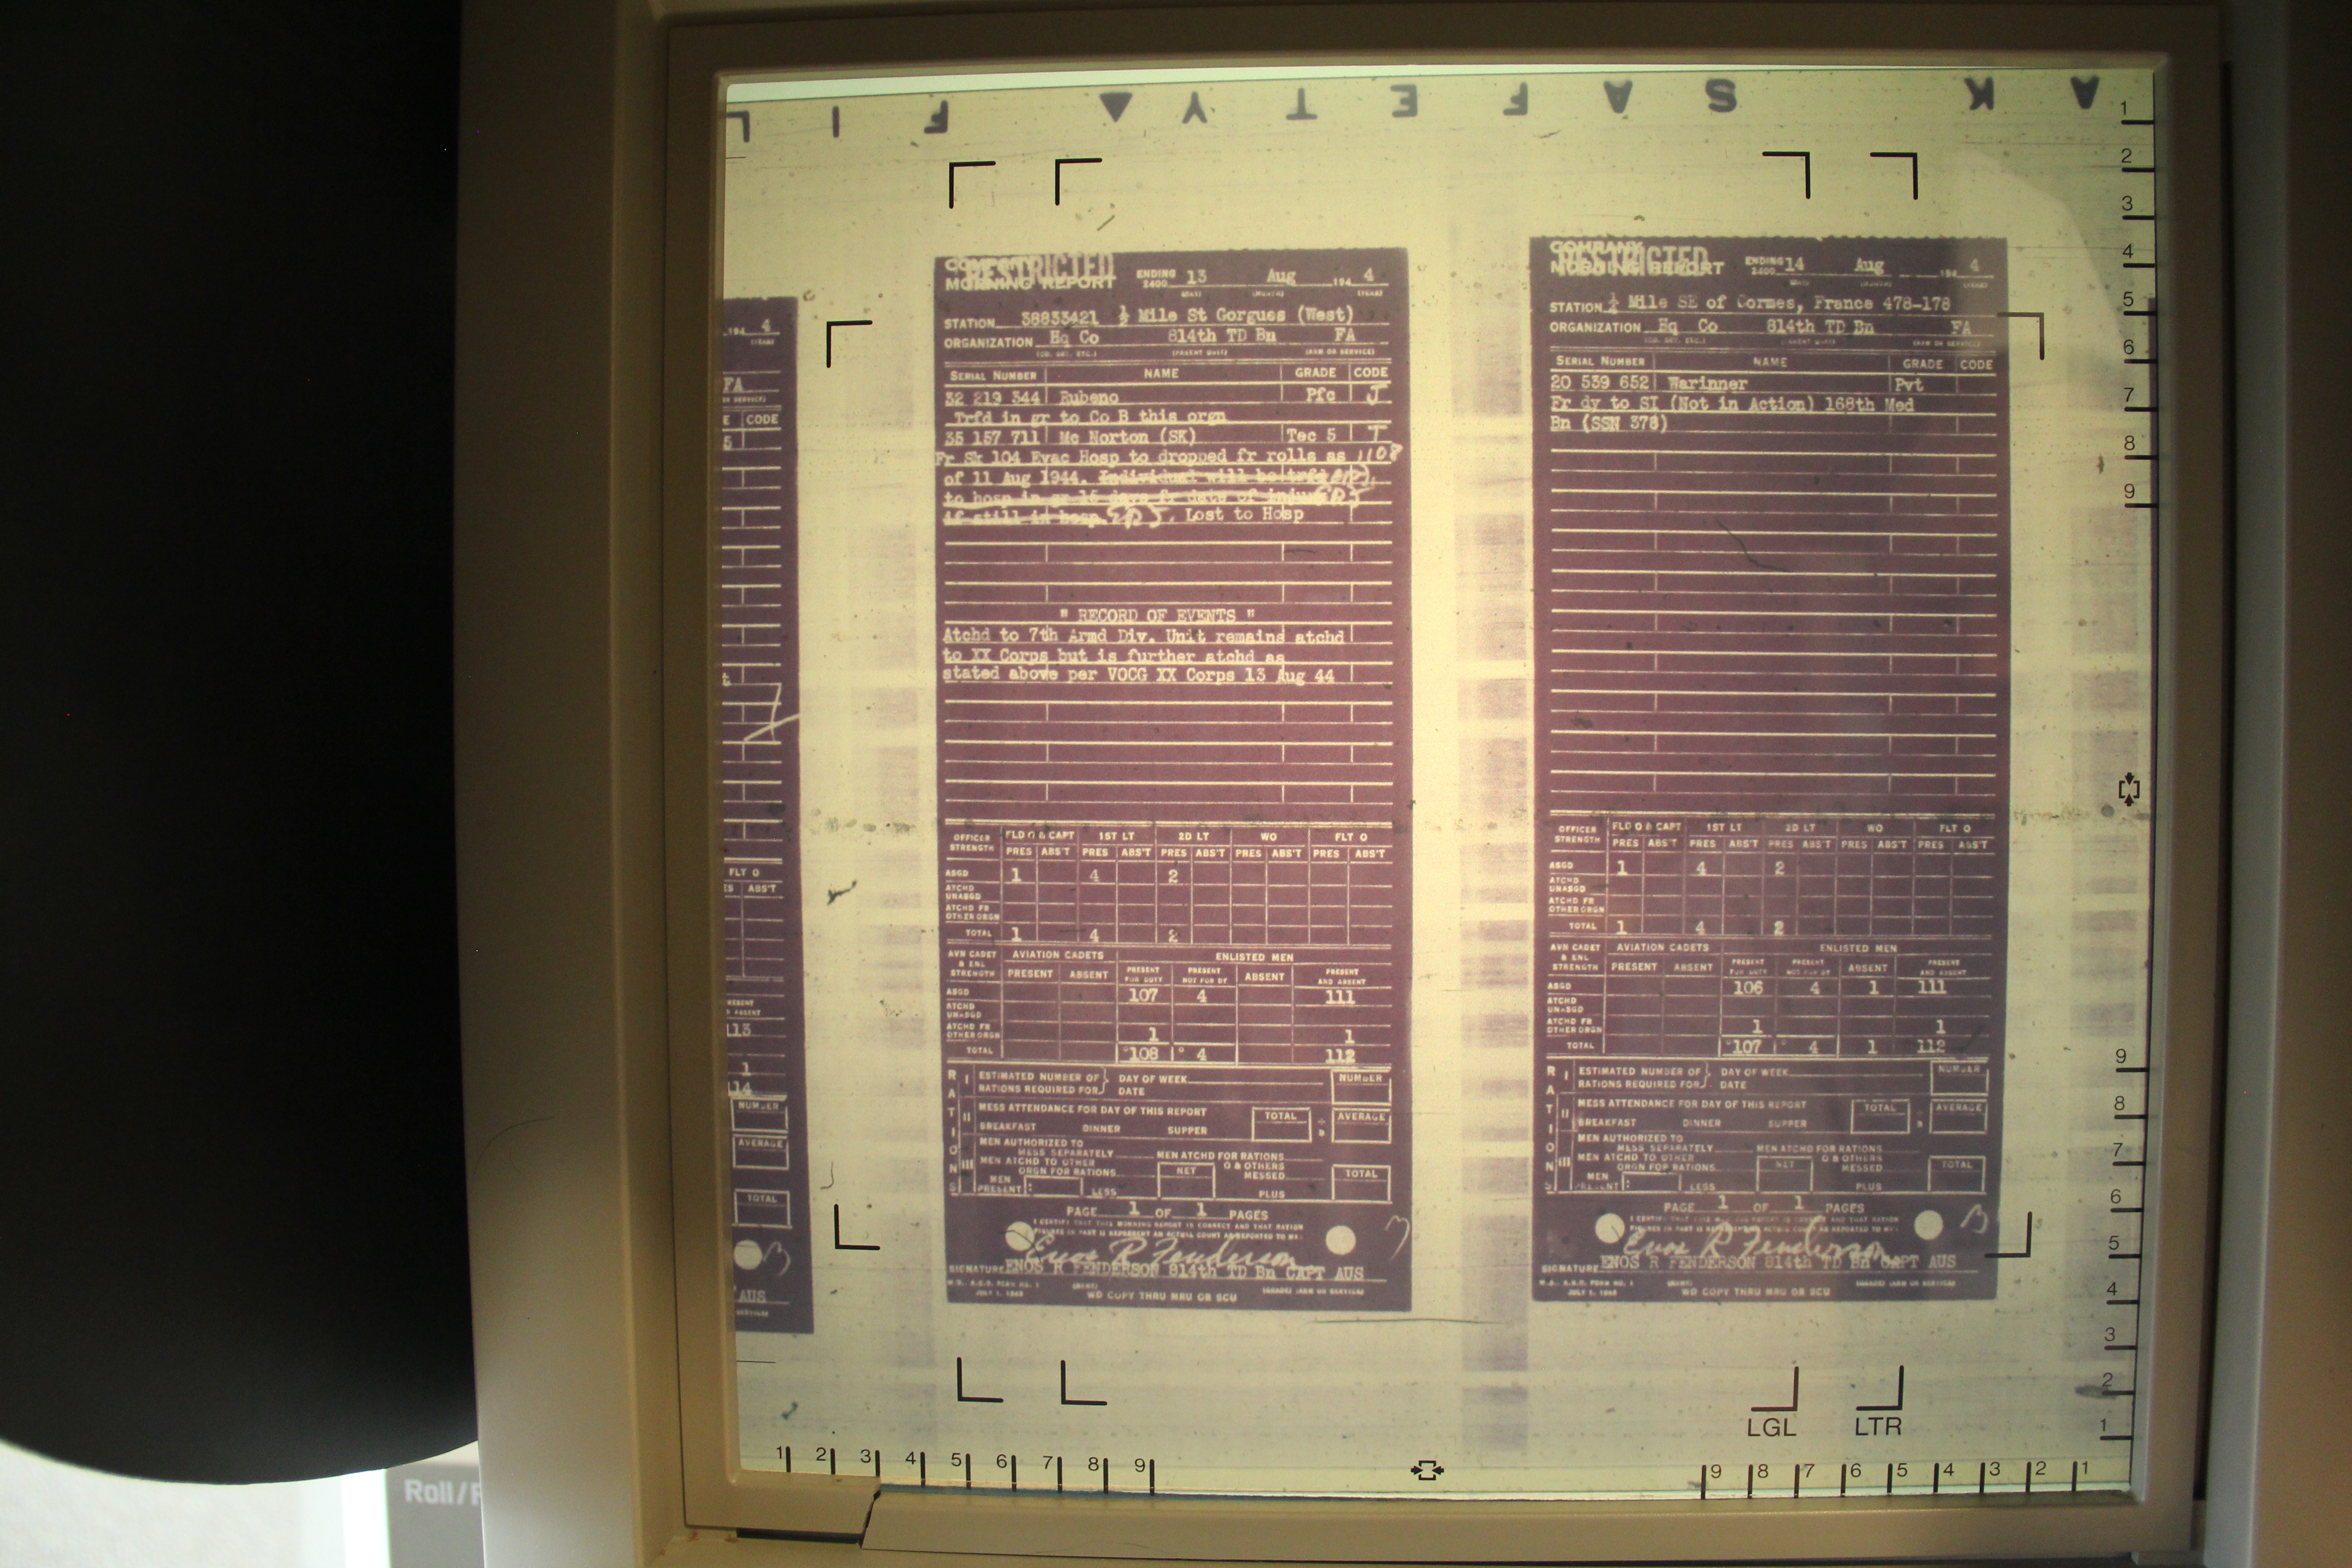 F I L
A K S A F E T Y ▲
194 4
FA
CODE
5
FLT O
ABS'T
113
1
114
NUMBER
AVERAGE
TOTAL
AUS
COMPANY
RESTRICTED
MORNING REPORT
ENDING 2400 13 Aug 194 4
(DAY) (MONTH) (YEAR)
STATION 38833421 ½ Mile St Gorgues (West)
ORGANIZATION Hq Co 814th TD Bn FA
(CO. DET. ETC.) (PARENT UNIT) (ARM OR SERVICE)
SERIAL NUMBER NAME GRADE CODE
32 219 344 Rubeno Pfc J
Trfd in gr to Co B this orgn
35 157 711 Mc Norton (SK) Tec 5 T
Fr Sk 104 Evac Hosp to dropped fr rolls as 1108
of 11 Aug 1944. Individual will be trfd
to hosp in gr 15 days fr date of injury
if still in hosp. Lost to Hosp
" RECORD OF EVENTS "
Atchd to 7th Armd Div. Unit remains atchd
to XX Corps but is further atchd as
stated above per VOCG XX Corps 13 Aug 44
OFFICER STRENGTH FLD O & CAPT 1ST LT 2D LT WO FLT O
PRES ABS'T PRES ABS'T PRES ABS'T PRES ABS'T PRES ABS'T
ASGD 1 4 2
ATCHD UNASGD
ATCHD FR OTHER ORGN
TOTAL 1 4 2
AVN CADET & ENL STRENGTH AVIATION CADETS ENLISTED MEN
PRESENT ABSENT PRESENT FOR DUTY PRESENT NOT FOR DY ABSENT PRESENT AND ABSENT
ASGD 107 4 111
ATCHD UNASGD
ATCHD FR OTHER ORGN 1 1
TOTAL 108 4 112
RATIONS
I ESTIMATED NUMBER OF RATIONS REQUIRED FOR DAY OF WEEK DATE NUMBER
II MESS ATTENDANCE FOR DAY OF THIS REPORT TOTAL AVERAGE
BREAKFAST DINNER SUPPER
III MEN AUTHORIZED TO MESS SEPARATELY MEN ATCHD FOR RATIONS
MEN ATCHD TO OTHER ORGN FOR RATIONS NET O & OTHERS MESSED TOTAL
MEN PRESENT: LESS PLUS
PAGE 1 OF 1 PAGES
I CERTIFY THAT THIS MORNING REPORT IS CORRECT AND THAT RATION
FIGURES IN PART II REPRESENT AN ACTUAL COUNT AS REPORTED TO ME.
Enos R Fenderson
SIGNATURE ENOS R FENDERSON 814th TD Bn CAPT AUS
W.D. A.G.O. FORM NO. 1
JULY 1, 1943 WD COPY THRU MRU OR SCU
COMPANY
RESTRICTED
MORNING REPORT
ENDING 2400 14 Aug 194 4
(DAY) (MONTH) (YEAR)
STATION ½ Mile SE of Cormes, France 478-178
ORGANIZATION Hq Co 814th TD Bn FA
(CO. DET. ETC.) (PARENT UNIT) (ARM OR SERVICE)
SERIAL NUMBER NAME GRADE CODE
20 539 652 Warinner Pvt
Fr dy to SI (Not in Action) 168th Med
Bn (SSN 378)
OFFICER STRENGTH FLD O & CAPT 1ST LT 2D LT WO FLT O
PRES ABS'T PRES ABS'T PRES ABS'T PRES ABS'T PRES ABS'T
ASGD 1 4 2
ATCHD UNASGD
ATCHD FR OTHER ORGN
TOTAL 1 4 2
AVN CADET & ENL STRENGTH AVIATION CADETS ENLISTED MEN
PRESENT ABSENT PRESENT FOR DUTY PRESENT NOT FOR DY ABSENT PRESENT AND ABSENT
ASGD 106 4 1 111
ATCHD UNASGD
ATCHD FR OTHER ORGN 1 1
TOTAL 107 4 1 112
RATIONS
I ESTIMATED NUMBER OF RATIONS REQUIRED FOR DAY OF WEEK DATE NUMBER
II MESS ATTENDANCE FOR DAY OF THIS REPORT TOTAL AVERAGE
BREAKFAST DINNER SUPPER
III MEN AUTHORIZED TO MESS SEPARATELY MEN ATCHD FOR RATIONS
MEN ATCHD TO OTHER ORGN FOR RATIONS NET O & OTHERS MESSED TOTAL
MEN PRESENT: LESS PLUS
PAGE 1 OF 1 PAGES
I CERTIFY THAT THIS MORNING REPORT IS CORRECT AND THAT RATION
FIGURES IN PART II REPRESENT AN ACTUAL COUNT AS REPORTED TO ME.
Enos R Fenderson
SIGNATURE ENOS R FENDERSON 814th TD Bn CAPT AUS
W.D. A.G.O. FORM NO. 1
JULY 1, 1943 WD COPY THRU MRU OR SCU
1 2 3 4 5 6 7 8 9
9 8 7 6 5 4 3 2 1
LGL LTR
1 2 3 4 5 6 7 8 9
9 8 7 6 5 4 3 2 1
Roll/